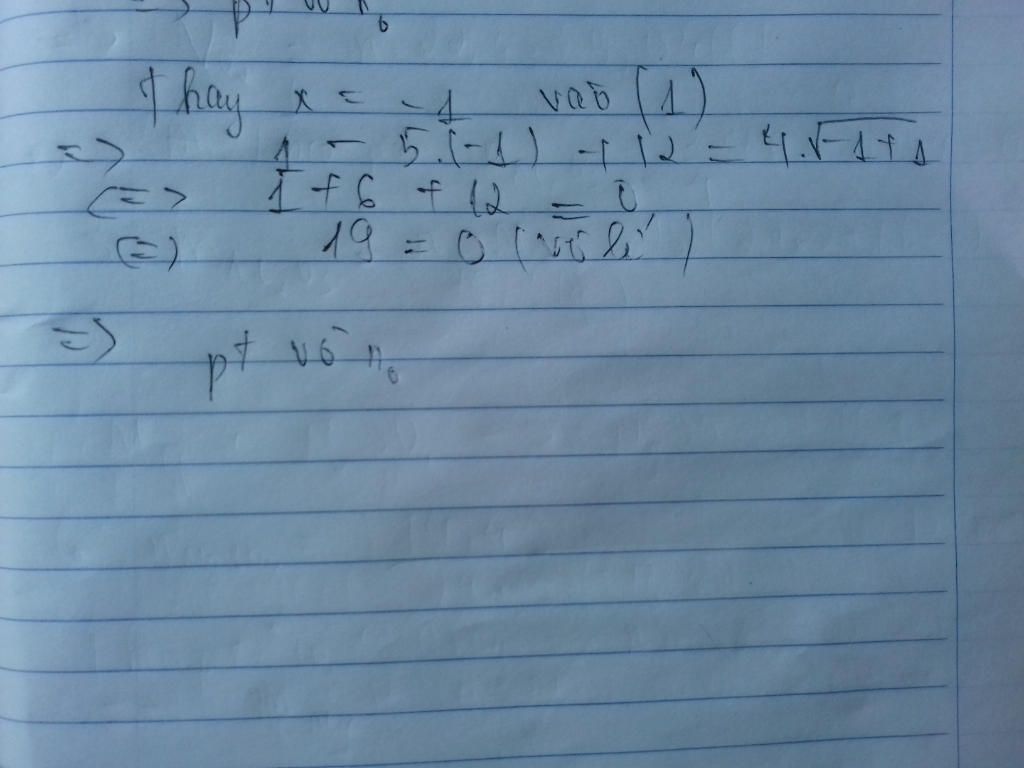 => pt vô n₀
Thay x = -1 vào (1)
=> 1 - 5.(-1) + 12 = 4.√-1+1
<=> 1 + 6 + 12 = 0
(=) 19 = 0 (vô lí)
=> pt vô n₀